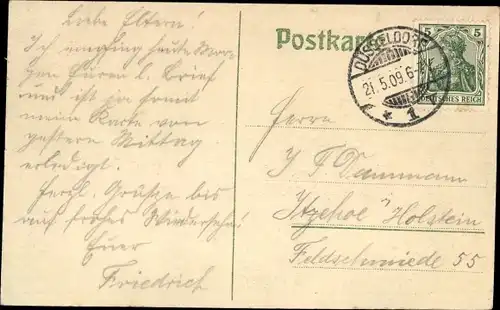 Liebe Eltern!
Ich empfing heute Mor-
gen Euren l. Brief
und ist ja somit
meine Karte vom
gestern Mittag
erledigt.
Herzl. Grüsse bis
auf frohes Wiedersehn!
Euer
Friedrich
Postkar
DÜSSELDORF
21.5.09.6-7
* 1
5 5
DEUTSCHES REICH
Herrn
J F. Dammann
Itzehoe Holstein
Feldschmiede 55